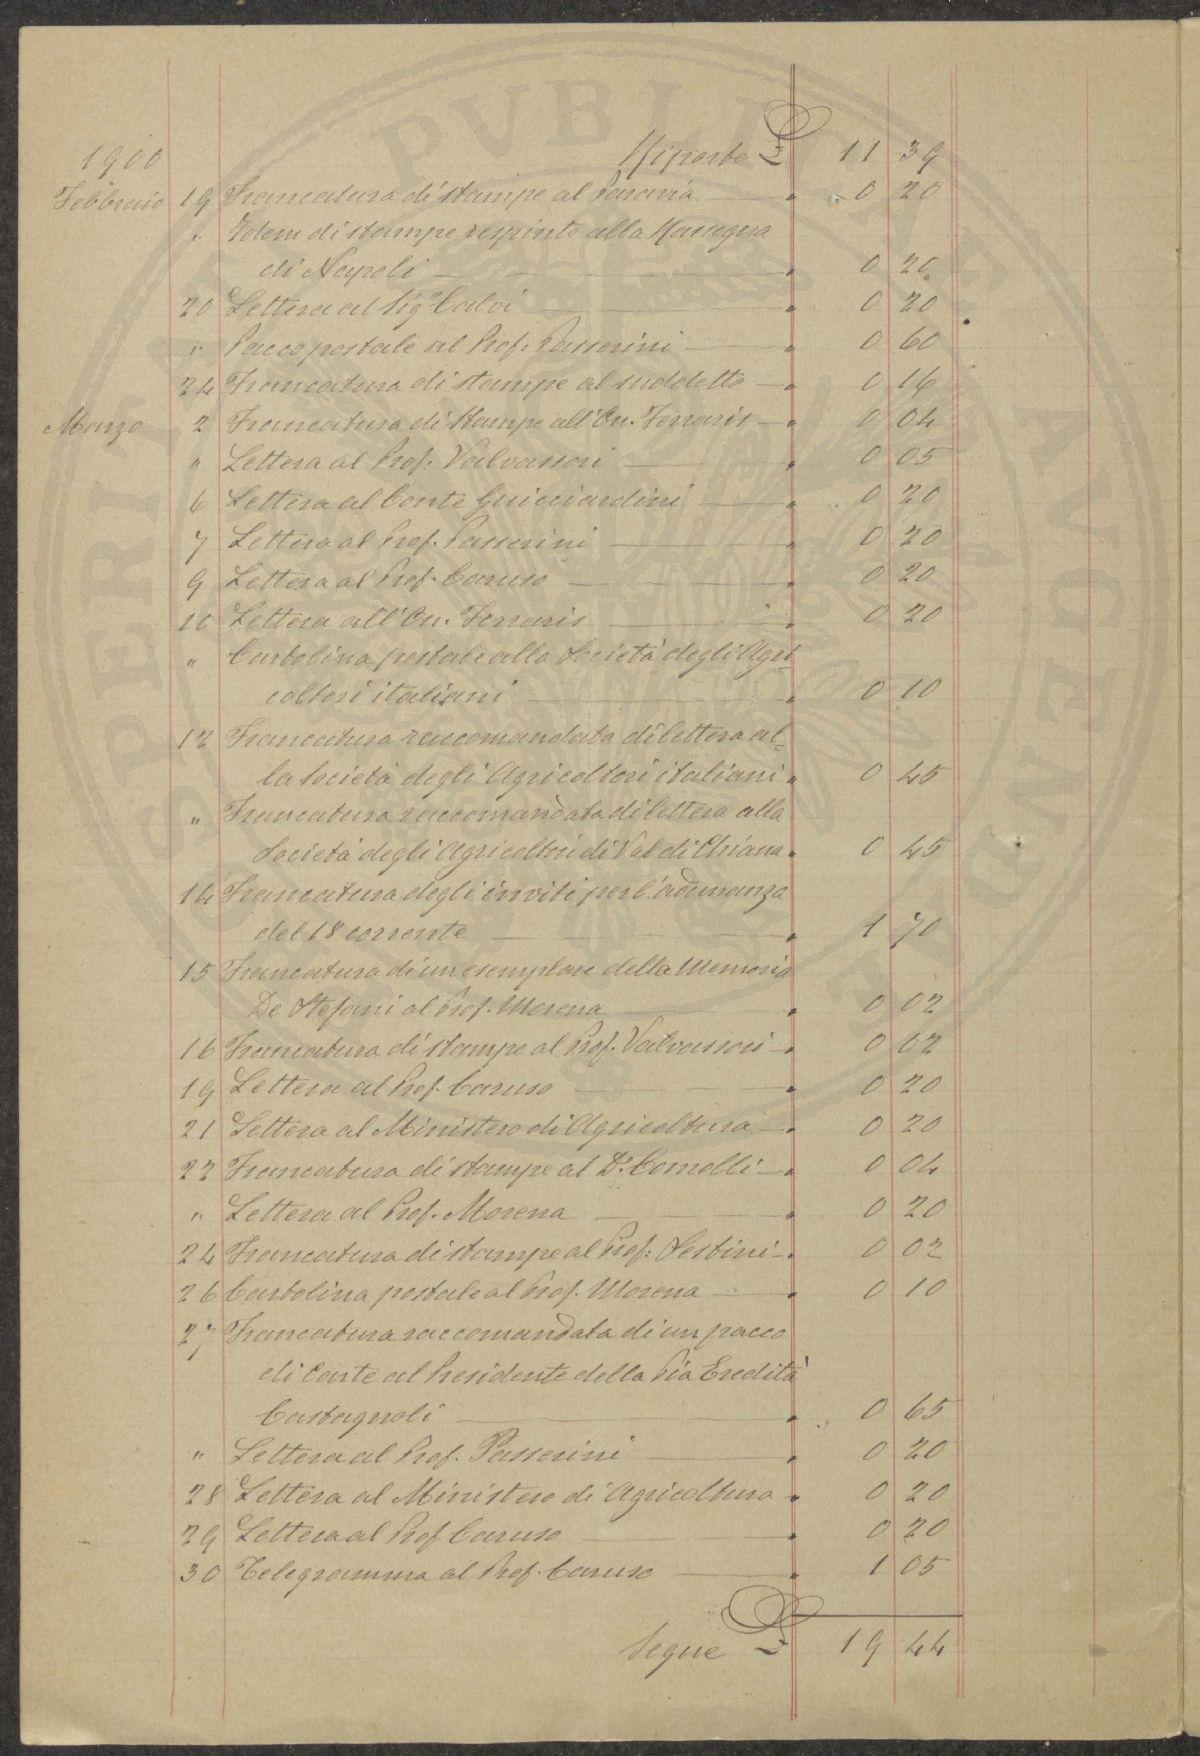 PVBLICAE
PROSPERITATIS AVGENDAE
1900 Riporto £ 11 39
Febbraio 19 Francatura di stampe al Paravia " 0 20
" Idem di stampe respinte alla Rassegna
di Napoli " 0 20
20 Lettera al Sigr Calvi " 0 20
" Pacco postale al Prof. Passerini " 0 60
24 Francatura di stampe al suddetto " 0 16
Marzo 2 Francatura di stampe all'On. Ferraris " 0 04
" Lettera al Prof. Valvassori " 0 05
6 Lettera al Conte Guicciardini " 0 20
7 Lettera al Prof. Passerini " 0 20
9 Lettera al Prof. Caruso " 0 20
10 Lettera all'On. Ferraris " 0 20
" Cartolina postale alla Società degli Agri
coltori italiani " 0 10
12 Francatura raccomandata di lettera al=
la Società degli Agricoltori italiani " 0 45
" Francatura raccomandata di lettera alla
Società degli Agricoltori di Val di Chiana " 0 45
14 Francatura degli inviti per l'adunanza
del 18 corrente " 1 70
15 Francatura di un esemplare della Memoria
De Stefani al Prof. Morena " 0 02
16 Francatura di stampe al Prof. Valvassori " 0 02
19 Lettera al Prof. Caruso " 0 20
21 Lettera al Ministero di Agricoltura " 0 20
22 Francatura di stampe al Dr. Comelli " 0 04
" Lettera al Prof. Morena " 0 20
24 Francatura di stampe al Prof. Sestini " 0 02
26 Cartolina postale al Prof. Morena " 0 10
27 Francatura raccomandata di un pacco
di carte al Presidente della Pia Eredità
Castagnoli " 0 65
" Lettera al Prof. Passerini " 0 20
28 Lettera al Ministero di Agricoltura " 0 20
29 Lettera al Prof Caruso " 0 20
30 Telegramma al Prof. Caruso " 1 05
Segue £ 19 44